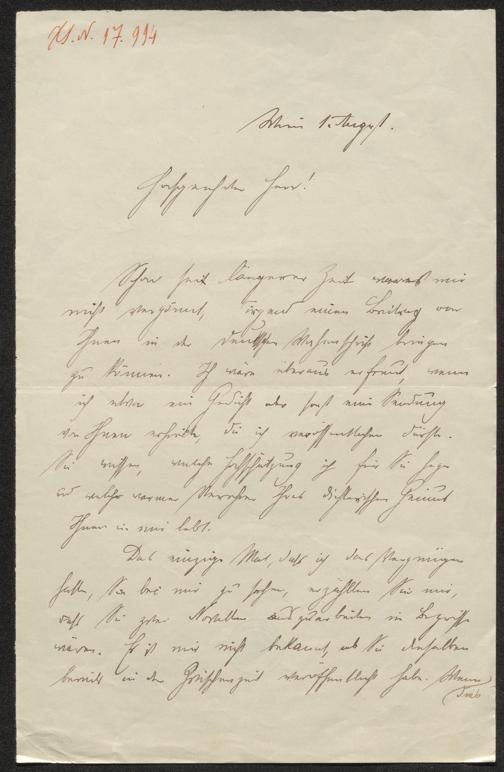 H.I.N. 17.994
Wien 1. August.
Hochgeehrter Herr!
Schon seit längerer Zeit war es mir
nicht vergönnt, irgend einen Beitrag von
Ihnen in der deutschen Wochenschrift bringen
zu können. Ich wäre überaus erfreut, wenn
ich etwa ein Gedicht oder sonst eine Sendung
von Ihnen erhielte, die ich veröffentlichen dürfte.
Sie wissen, welche Hochschätzung ich für Sie hege
und welch warmer Verehrer Ihres dichterischen Genius
Ihnen in mir lebt.
Das einzige Mal, daß ich das Vergnügen
hatte, Sie bei mir zu sehen, erzählten Sie mir,
daß Sie zwei Novellen auszuarbeiten im Begriffe
wären. Es ist mir nicht bekannt, ob Sie dieselben
bereits in der Zwischenzeit veröffentlicht habe. Wenn